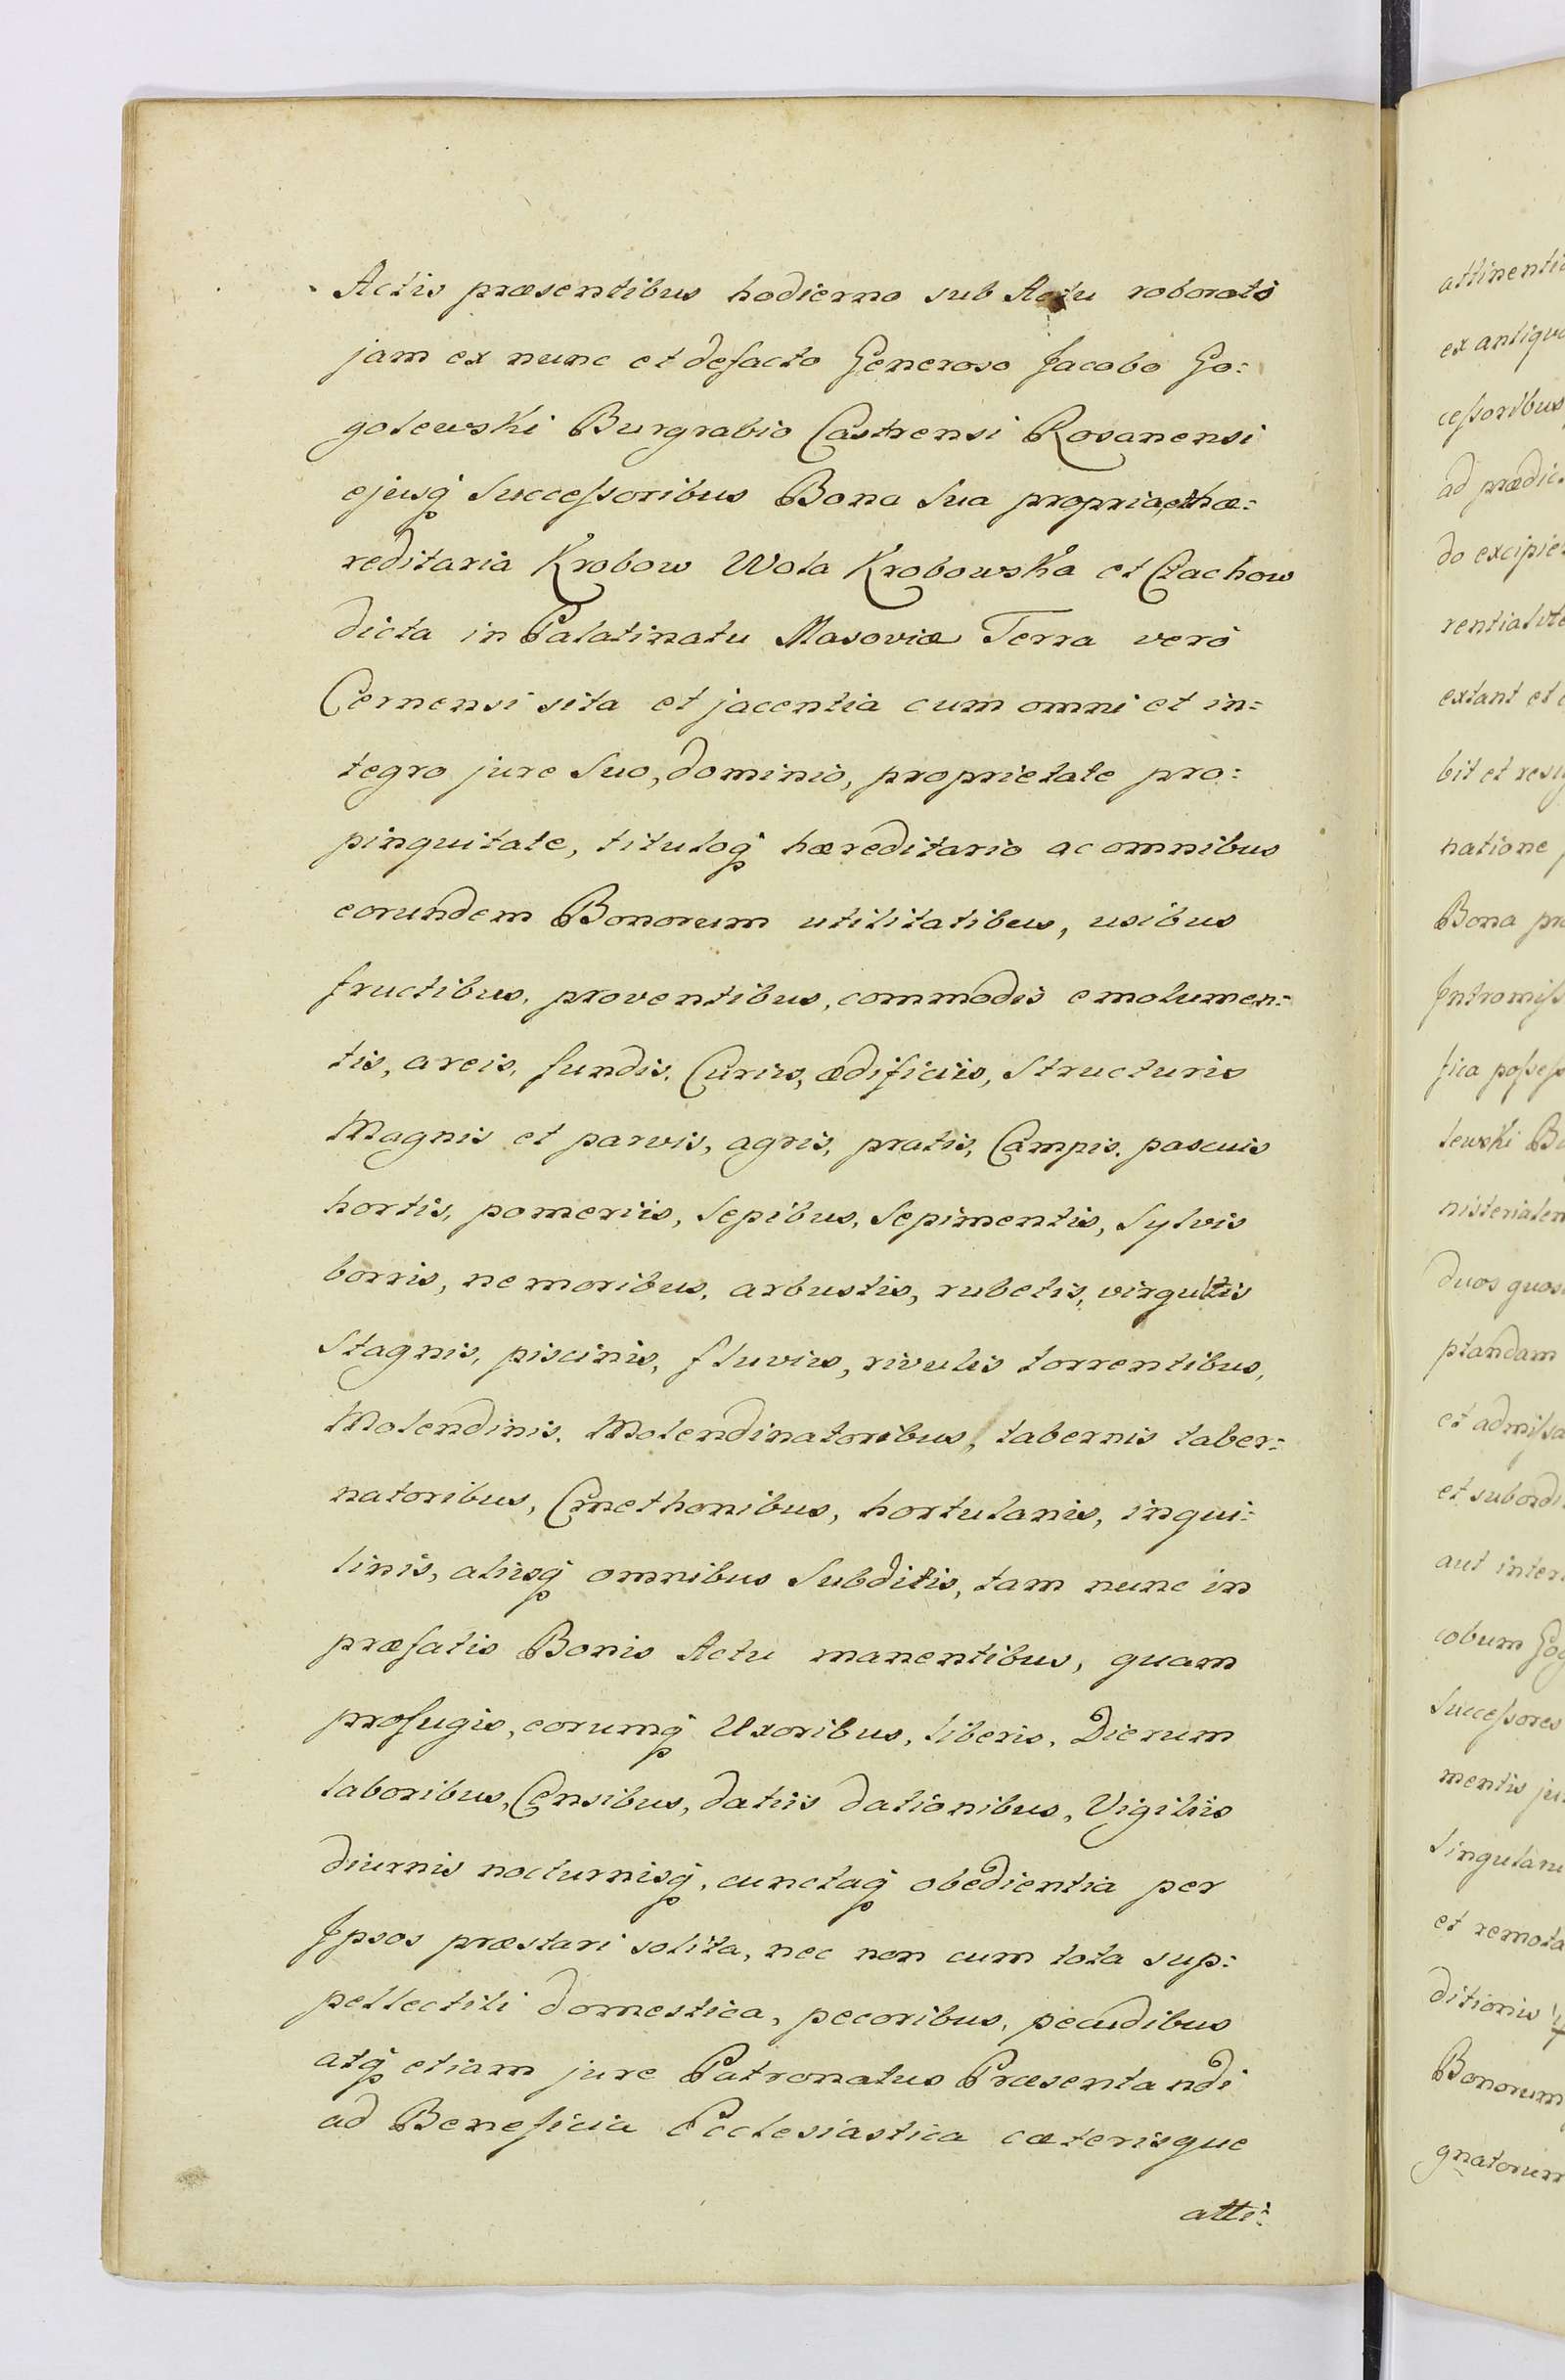 Actis præsentibus hodierno sub Actu roborato
jam ex nunc et defacto Generoso Jacobo Go=
golewski Burgrabio Castrensi Rosanensi
ejusq́ Successoribus Bona Sua propria, et hæ=
reditaria Krobow Wola Krobowska et Czachow
dicta in Palatinatu Masoviæ Terra verò
Cernensi sita et jacentia cum omni et in=
tegro jure Suo, dominio, proprietate pro=
pinquitate, tituloq́ hæreditario ac omnibus
eorundem Bonorum utilitatibus, usibus
fructibus, proventibus, commodis emolumen=
tis, areis, fundis, Curiis, ædificiis, Structuris
Magnis et parvis, agris, pratis, Campis, pascuis
hortis, pomeriis, Sepibus, Sepimentis, Sylvis
borris, nemoribus, arbustis, rubetis, virgultis
Stagnis, piscinis, fluviis, rivulis torrentibus,
Molendinis, Molendinatoribus, tabernis taber=
natoribus, Cmethonibus, hortulanis, inqui=
linis, aliisq́ omnibus Subditis, tam nunc in
præfatis Bonis Actu manentibus, quam
profugis, eorumq́ Uxoribus, liberis, Dierum
laboribus, Censibus, datiis dationibus, Vigiliis
diurnis nocturnisq́, cunctaq́ obedientia per
Ipsos præstari solita, nec non cum tota sup=
pellectili domestica, pecoribus, pecudibus
atq́ etiam jure Patronatus Præsentandi
ad Beneficia Ecclesiastica cæterisque
atti=
attinenti
ex antiqu
cessoribus
ad prædic
do excipie
rentia
extant et
bit et resig
natione
Bona pr
Intromiss
fica possess
lewski B
nisterialem
duos quos
ptandam
et admissa
et subordi
aut inter
cobum Gog
Successores
mentis ju
Singulari
et remota
ditionis
Bonorum
gnatorum